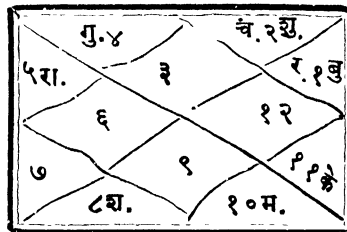 गु.४ चं.२शु.
५रा. ३ र.१बु
६ १२
७ ९ ११के
८श. १०म.